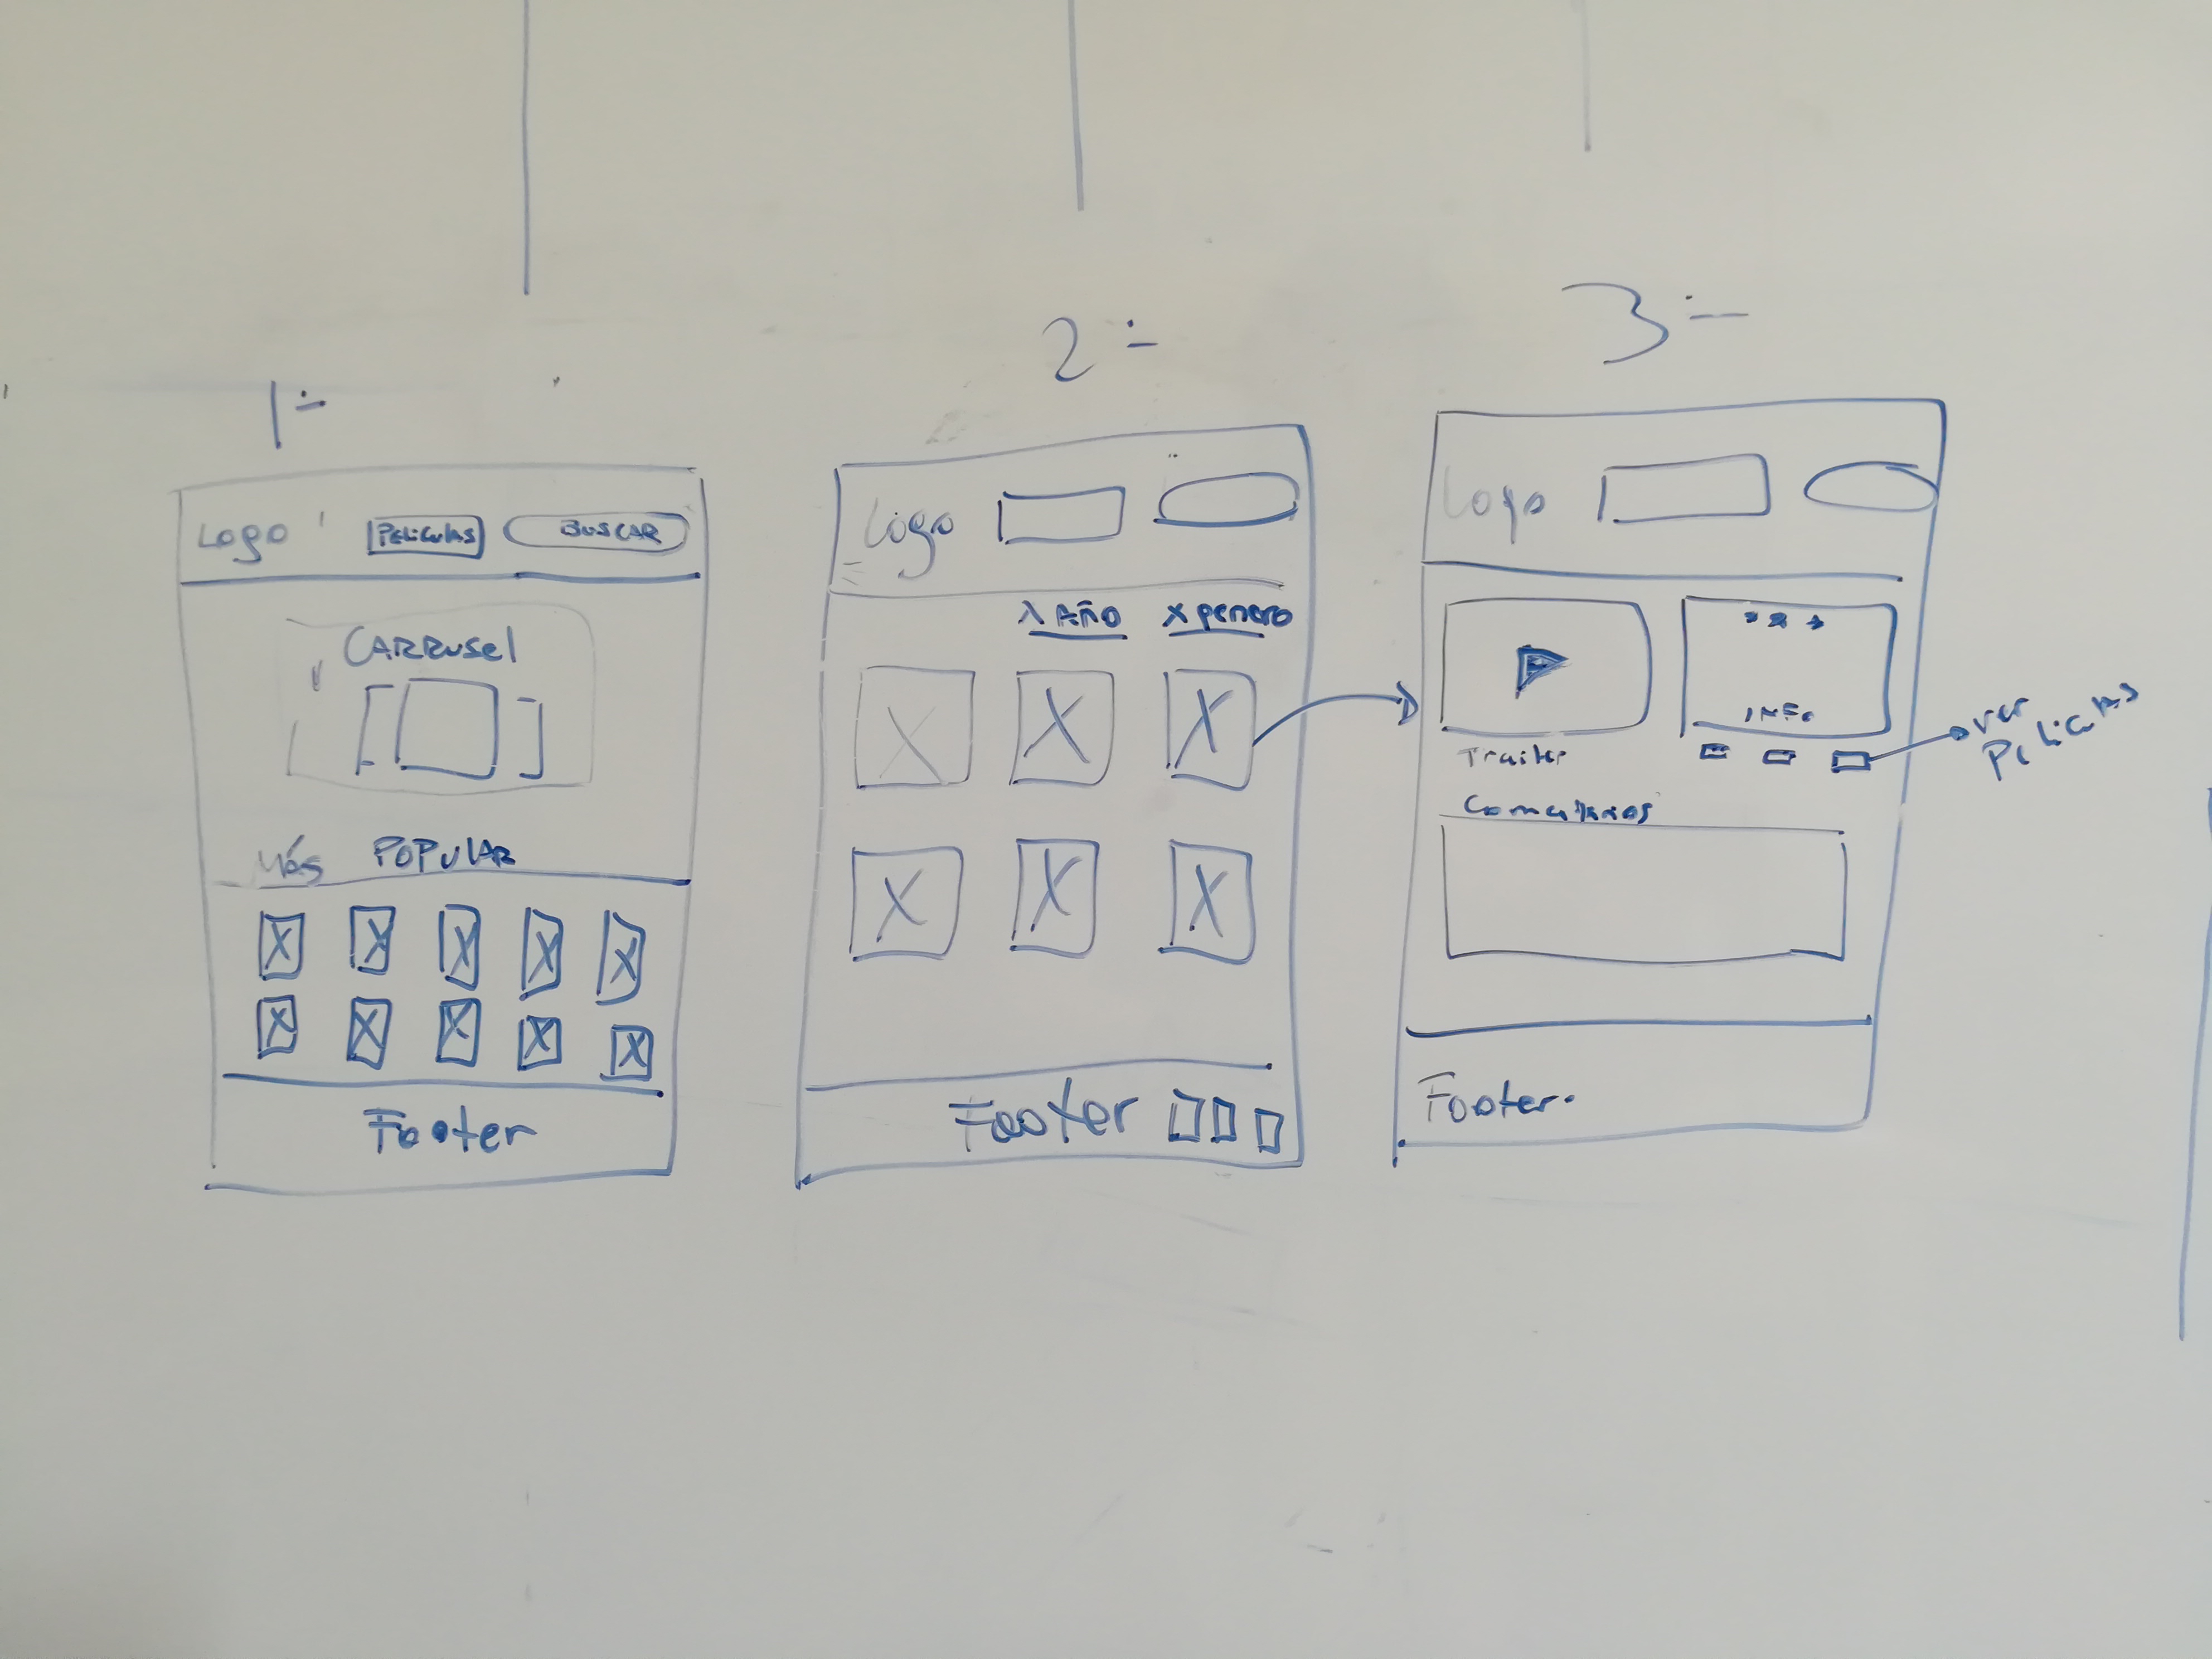 1.-
Logo
Peliculas
BUSCAR
CARRUSEL
Más POPULAR
Footer
2.-
Logo
X AÑO
X genero
Footer
3.-
Logo
INFO
Trailer
ver
Peliculas
Comentarios
Footer.